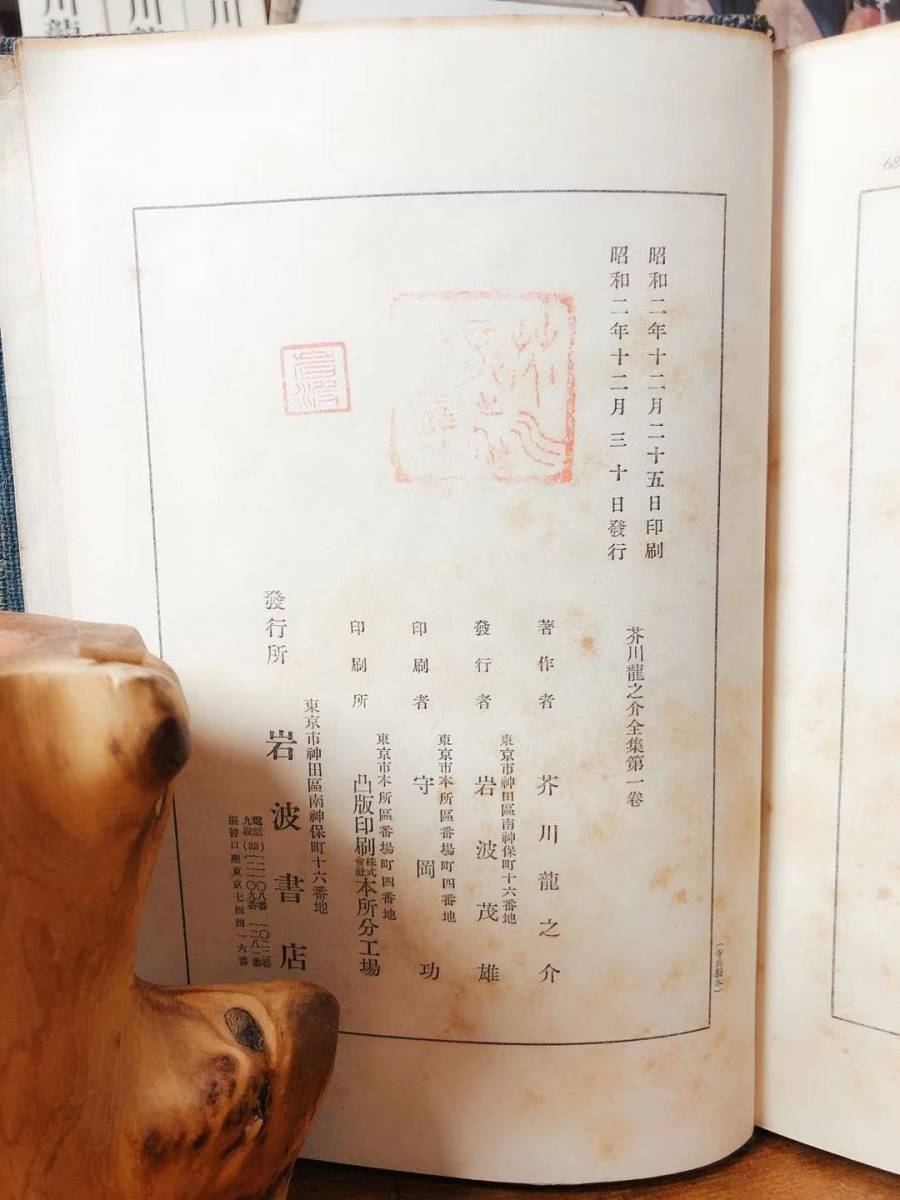 昭和二年十二月二十五日印刷
昭和二年十二月三十日發行
芥川龍之介全集第一卷
著作者 芥川龍之介
東京市神田區南神保町十六番地
發行者 岩波茂雄
東京市本所區番場町四番地
印刷者 守岡功
東京市本所區番場町四番地
印刷所 凸版印刷株式會社本所分工場
東京市神田區南神保町十六番地
發行所 岩波書店
電話
九段(33)
振替口座東京七四四一六番
岩波
川龍
川
川
68